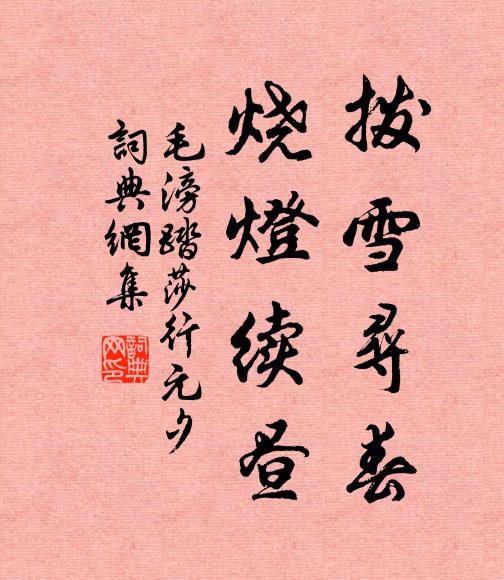 拨雪尋春
烧燈续昼
毛滂踏莎行元夕
詞典網集
詞典網印